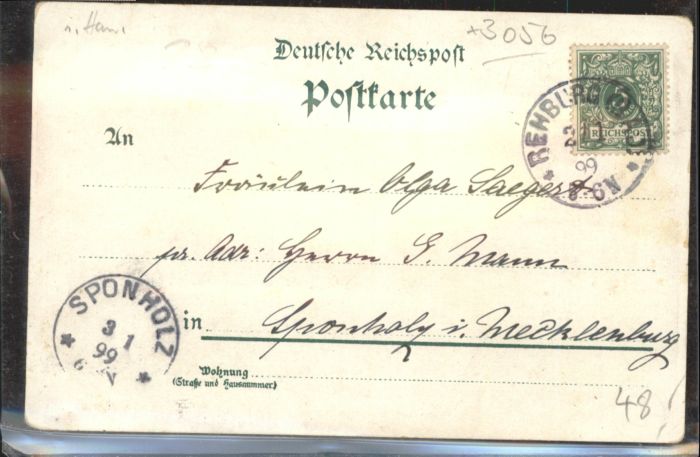 i. Han.
+3056
Deutsche Reichspost
Postkarte
REICHSPOST
REHBURG
2 1
99
6-N
An
Fräulein Olga Saegert
pr. Adr: Herrn G. Mann
in Sponholz i. Mecklenburg
SPONHOLZ
3 1
99
Wohnung
(Straße und Hausnummer)
48